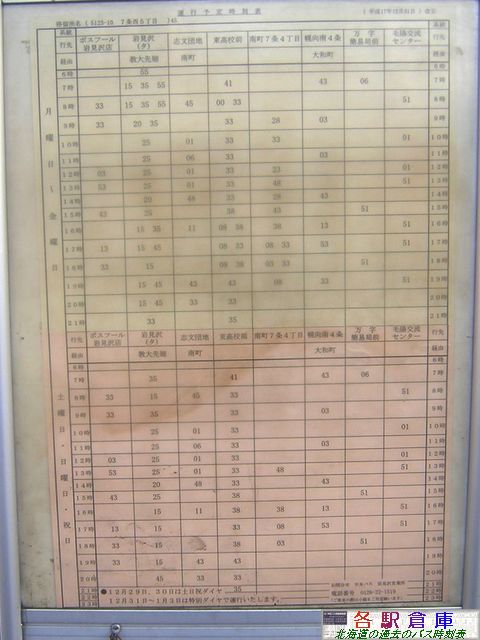 運行予定時刻表
停留所名 ( 5125-10 7条西5丁目 )
(平成17年12月01日) 改正
系統 系統
行先 ポスフール岩見沢店 岩見沢(タ) 志文団地 東高校前 南町7条4丁目 幌向南4条 万字簡易局前 毛陽交流センター 行先
経由 教大先廻 南町 大和町 経由
月曜日〜金曜日
6時 55
7時 15 35 55 41 43 06 7時
8時 33 15 35 55 45 00 33 51 8時
9時 33 20 35 33 28 03 9時
10時 25 01 33 33 01 10時
11時 25 06 33 03 11時
12時 03 25 01 33 23 01 12時
13時 53 25 01 33 48 51 13時
14時 20 48 33 28 43 14時
15時 43 25 38 43 51 15時
16時 15 35 11 08 38 38 13 51 16時
17時 13 15 45 08 33 08 33 53 51 17時
18時 33 15 08 38 03 33 51 18時
19時 15 45 43 43 08 33 51 19時
20時 15 45 33 33 20時
21時 33 35 21時
行先 ポスフール岩見沢店 岩見沢(タ) 志文団地 東高校前 南町7条4丁目 幌向南4条 万字簡易局前 毛陽交流センター 行先
経由 教大先廻 南町 大和町 経由
土曜日・日曜日・祝日
6時 6時
7時 35 41 43 06 7時
8時 33 15 45 33 51 8時
9時 33 35 33 03 9時
10時 25 01 33 01 10時
11時 25 06 33 03 11時
12時 03 25 01 33 01 12時
13時 53 25 01 33 48 51 13時
14時 20 48 33 43 14時
15時 43 25 38 51 15時
16時 15 11 38 38 13 51 16時
17時 13 15 33 08 53 51 17時
18時 33 15 38 03 51 18時
19時 33 15 43 43 19時
20時 45 33 33 20時
35
●12月29日、30日は土日祝ダイヤ
12月31日〜1月3日は特別ダイヤで運行いたします。
電話番号 0126-22-1519
各駅倉庫
北海道の過去のバス時刻表